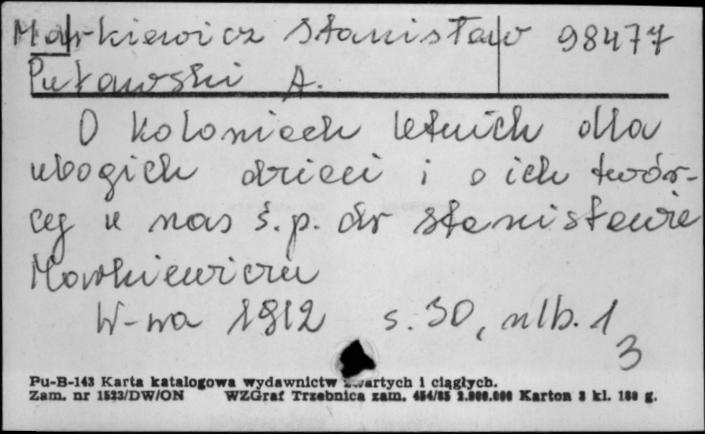 Markiewicz Stanisław 98477
Puławski A.
O koloniach letnich dla
ubogich dzieci i o ich twór-
cy u nas ś.p. dr Stanisławie
Markiewiczu
W-wa 1912 s. 30, nlb. 1
3
Pu-B-143 Karta katalogowa wydawnictw zwartych i ciągłych.
Zam. nr 1523/DW/ON WZGraf Trzebnica zam. 454/85 2.000.000 Karton 3 kl. 180 g.